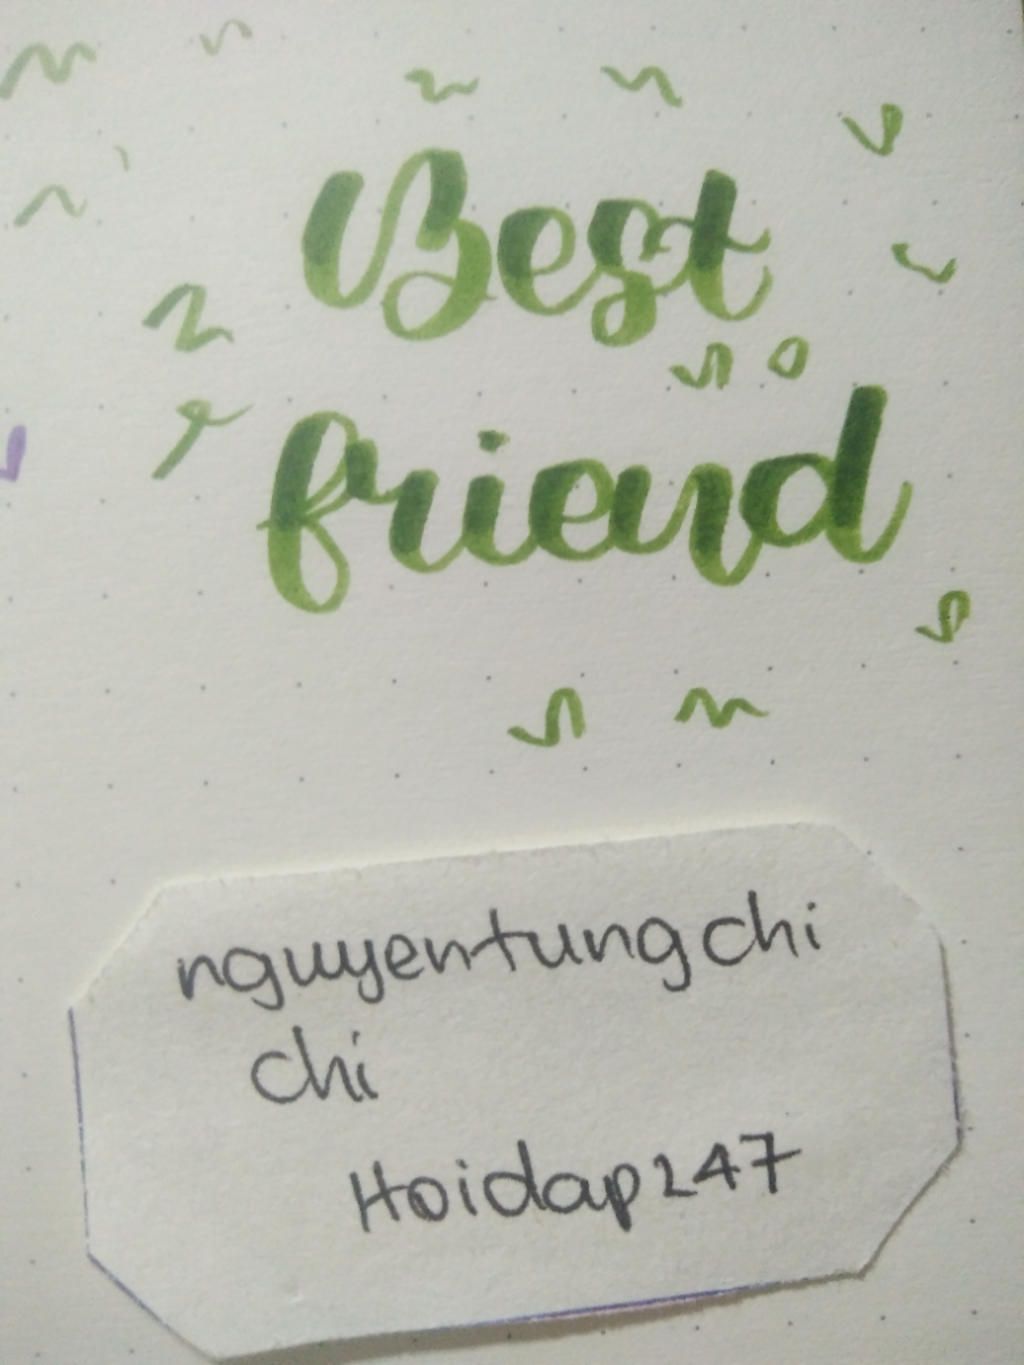 Best
friend
nguyentungchi
chi
Hoidap247